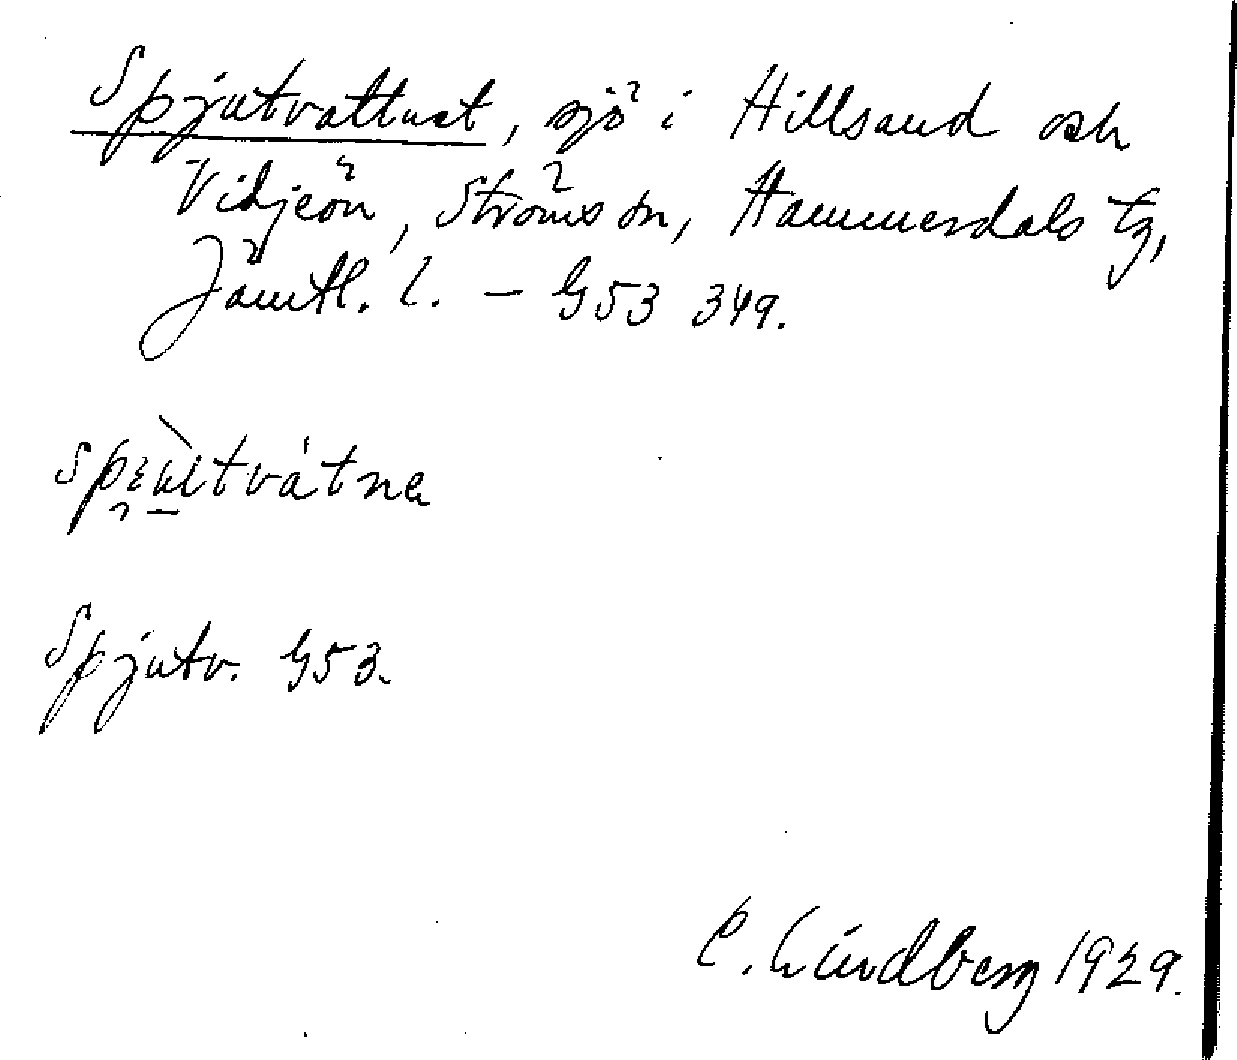 Spjutvattnet, sjö i Hillsand och
Vidjeön, Ströms sn, Hammerdals tg,
Jämtl. l. – G53 349.
Spjutv. G53.
C. Lindberg 1929.